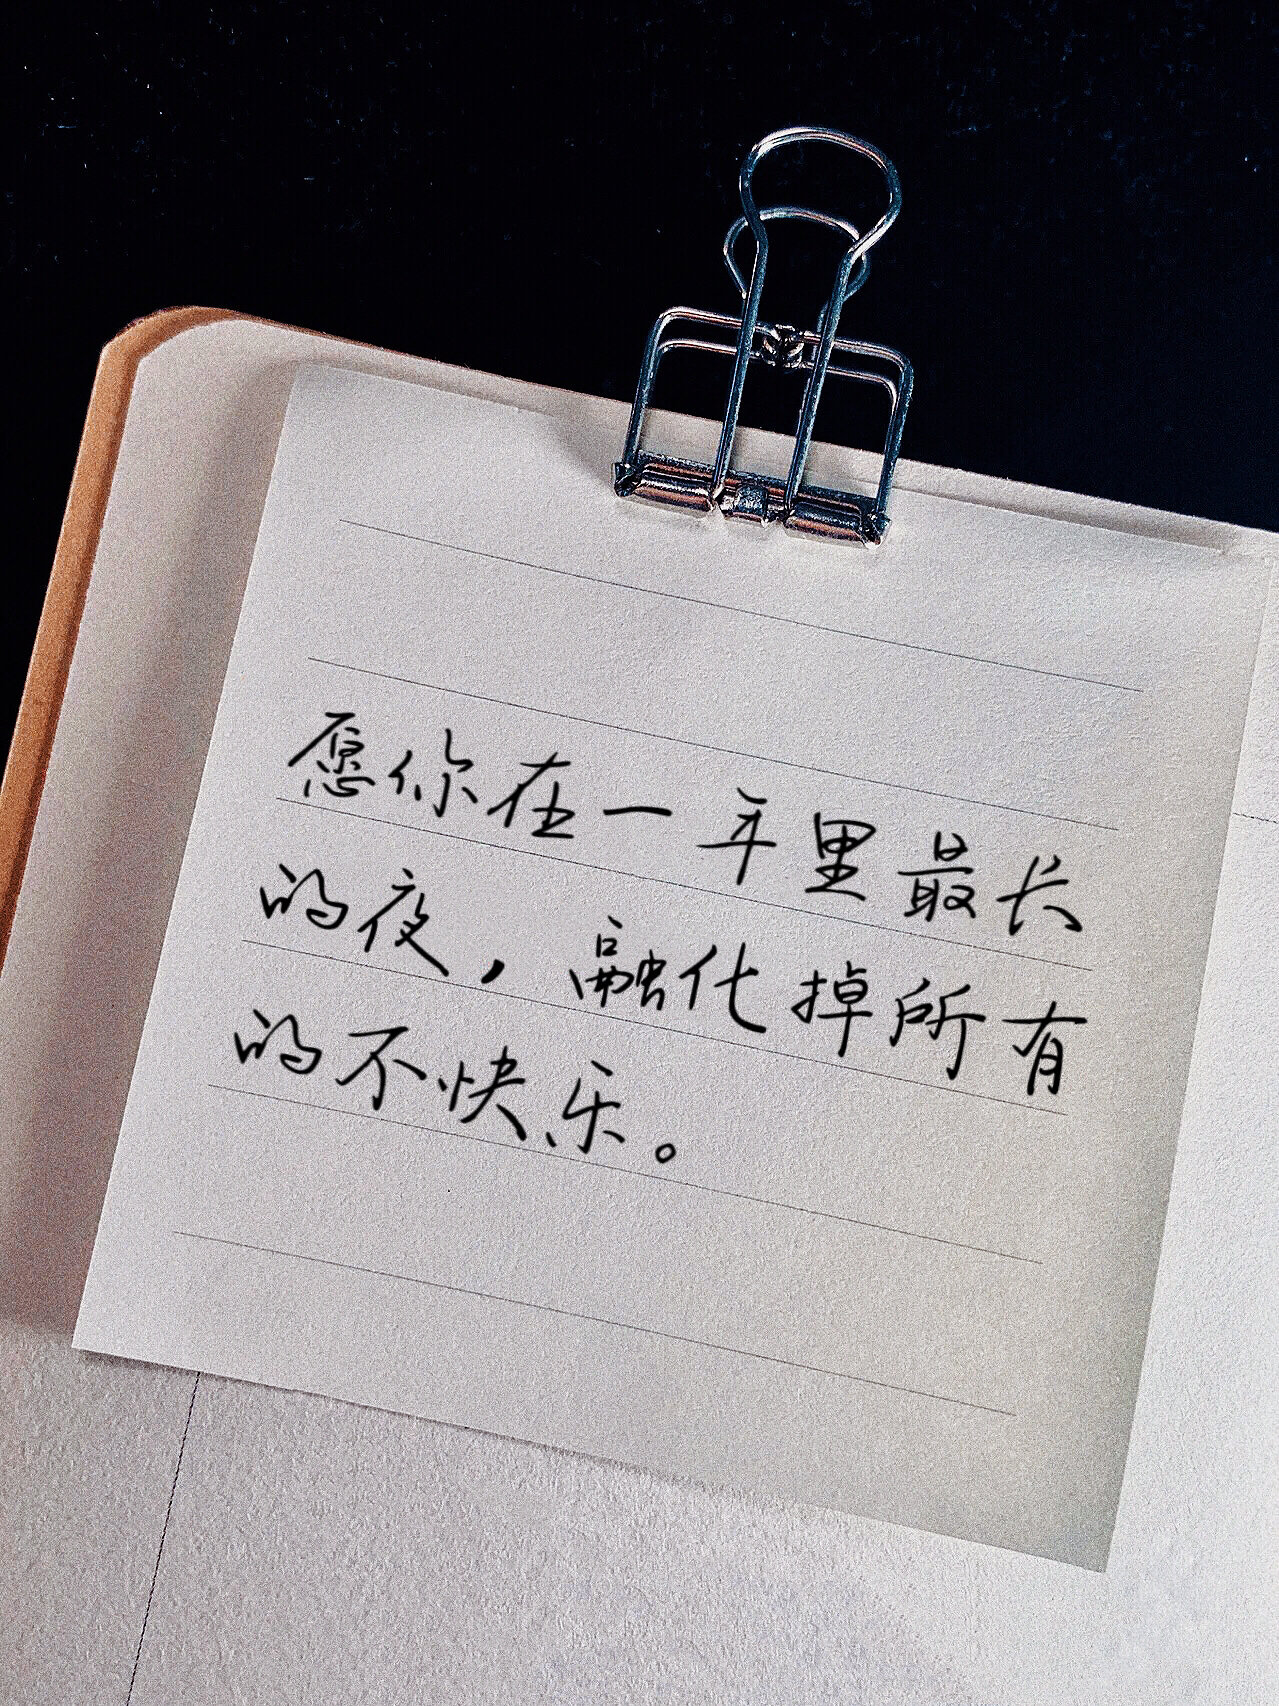 愿你在一年里最长
的夜，融化掉所有
的不快乐。